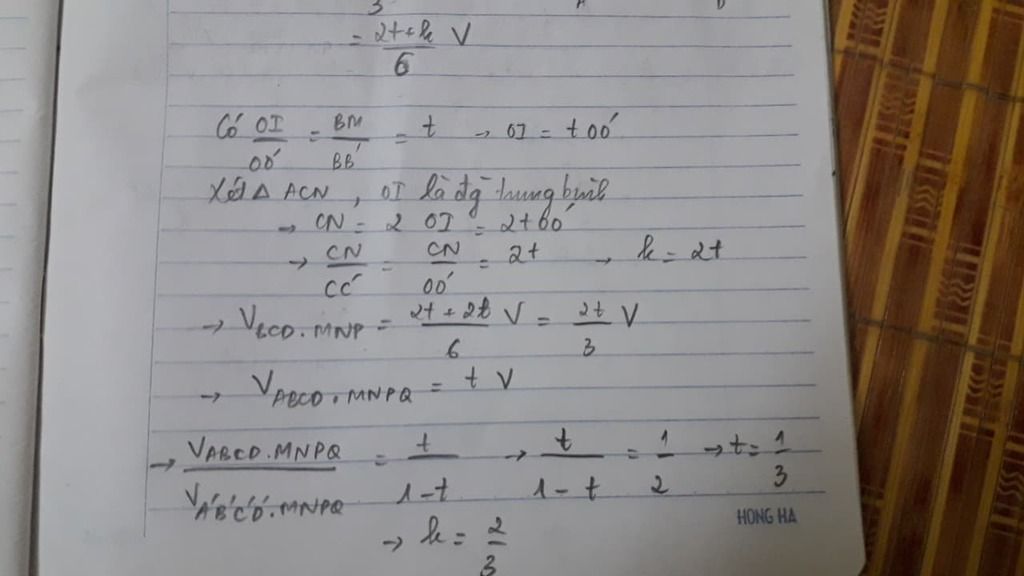 3 A D
= 2t+k/6 V
Có OI/OO' = BM/BB' = t → OI = t OO'
Xét Δ ACN, OI là đg trung bình
→ CN = 2 OI = 2t OO'
→ CN/CC' = CN/OO' = 2t → k = 2t
→ VBCD.MNP = 2t + 2t/6 V = 2t/3 V
→ VABCD.MNPQ = t V
→ VABCD.MNPQ/VA'B'C'D'.MNPQ = t/1-t → t/1-t = 1/2 → t = 1/3
→ k = 2/3
HONG HA